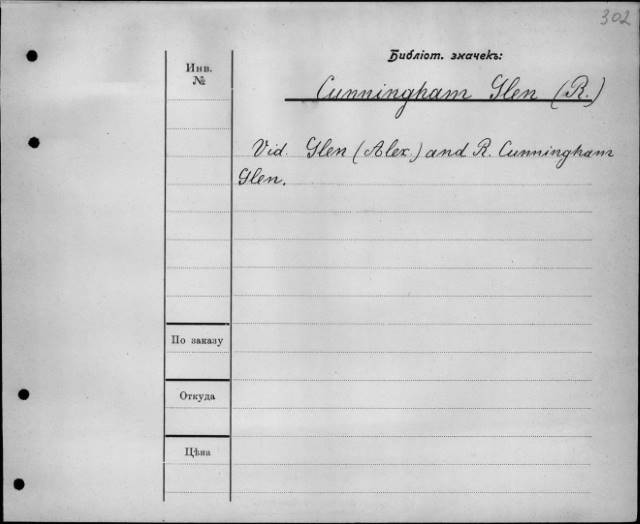 302
Библіот. значекъ:
Инв.
№
Cunningham Glen (R.)
Vid. Glen (Alex.) and R. Cunningham
Glen.
По заказу
Откуда
Цѣна